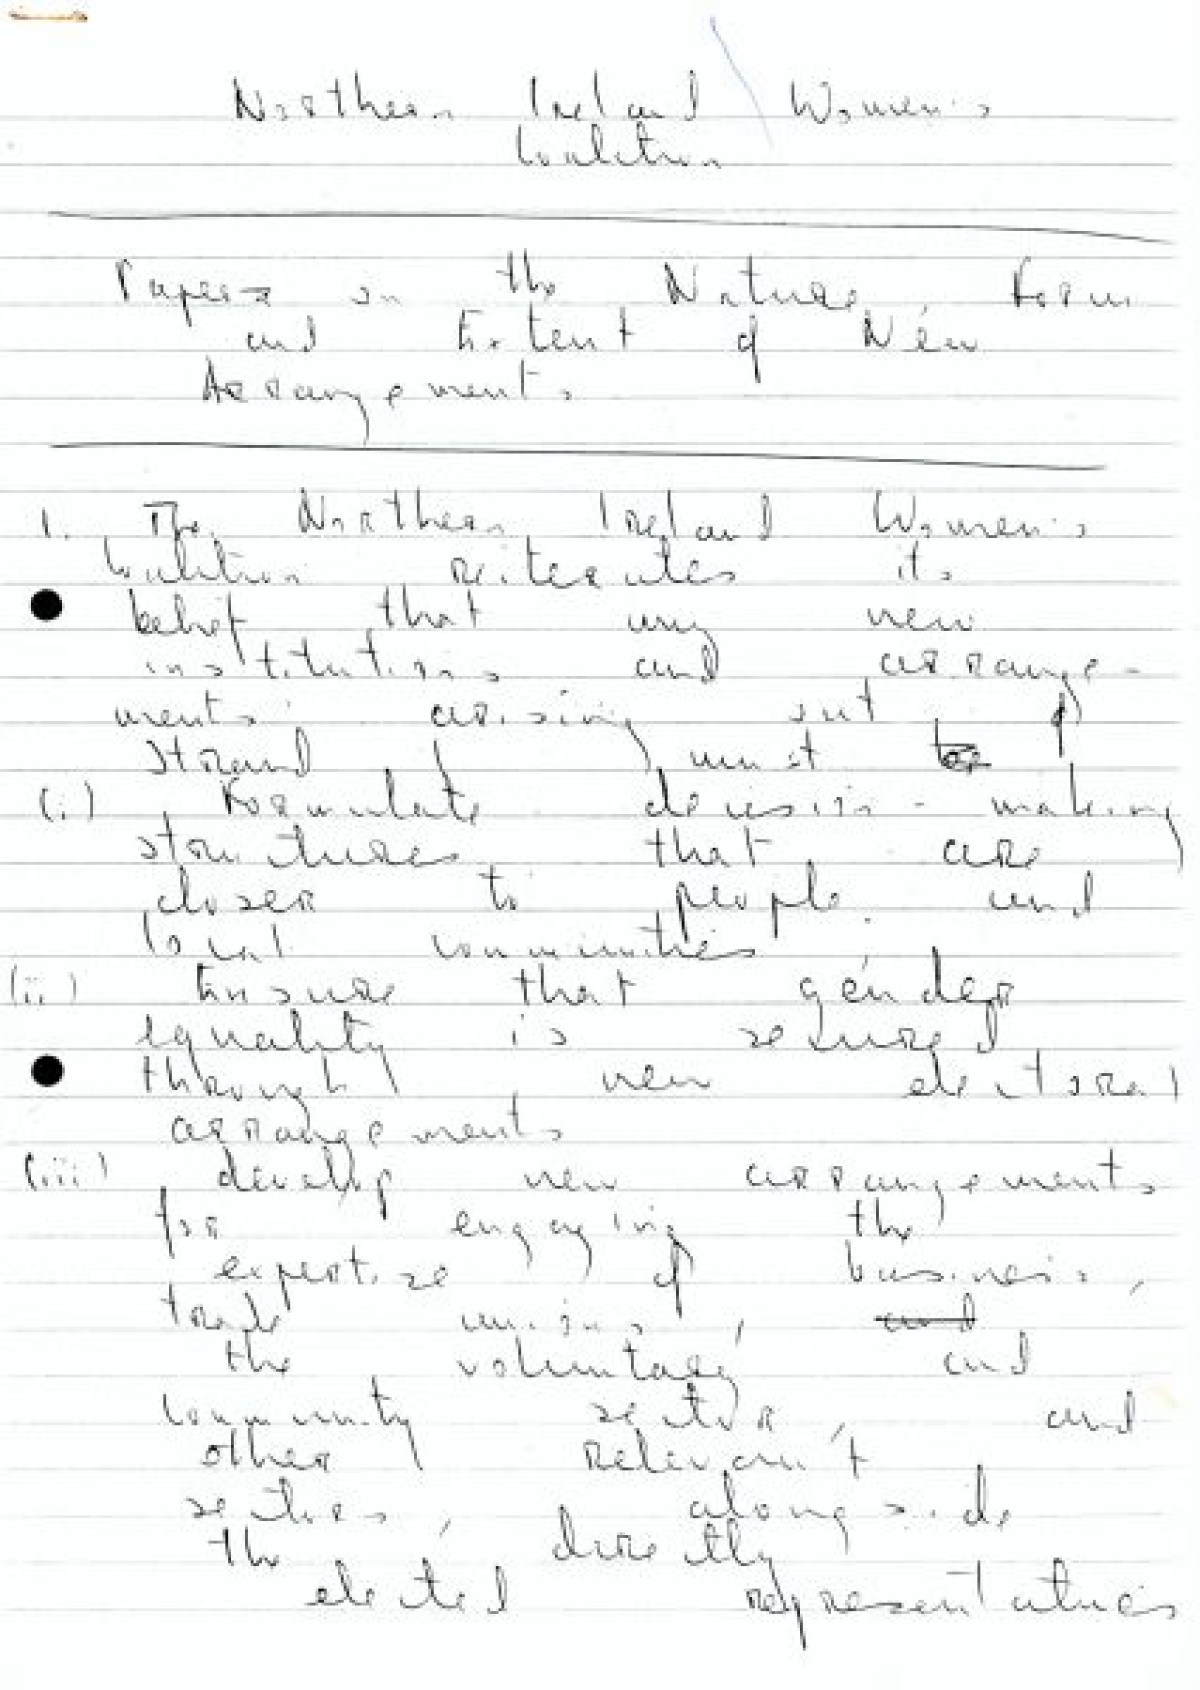 Northern Ireland Women's
Coalition
Paper on the Nature, Form
and Extent of New
Arrangements
1. The Northern Ireland Women's
Coalition reiterates its
belief that any new
institutions and arrange-
ments arising out of
strand 1 must be
(i) Formulate decision-making
structures that are
closer to people and
local communities
(ii) Ensure that gender
equality is secured
through new electoral
arrangements
(iii) develop new arrangements
for engaging the
expertise of business,
trade unions, and
the voluntary and
community sector, and
other relevant
sectors, alongside
the directly
elected representatives